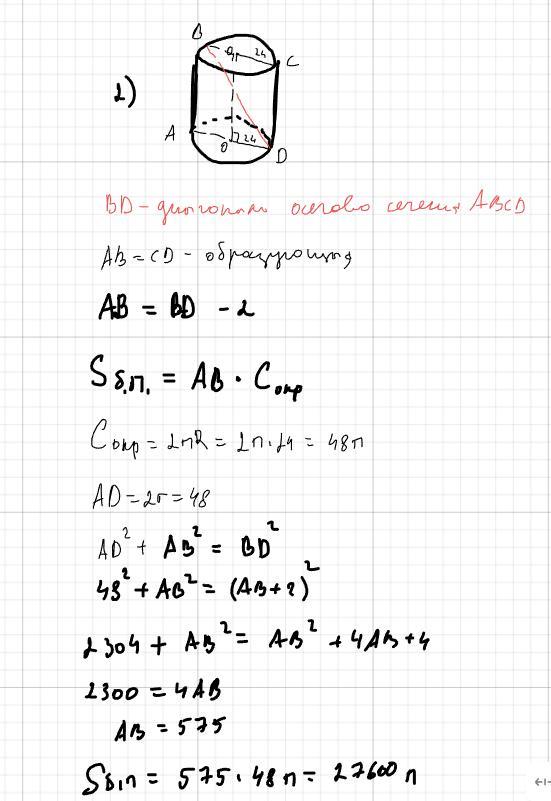 B
O₁ 24 C
2)
A
O 24 D
BD - диагональ осевого сечения ABCD
AB = CD - образующая
AB = BD - 2
Sб.п. = AB · Cокр
Cокр = 2πR = 2π·24 = 48π
AD = 2r = 48
AD² + AB² = BD²
48² + AB² = (AB+2)²
2304 + AB² = AB² + 4AB + 4
2300 = 4AB
AB = 575
Sбп = 575 · 48π = 27600π